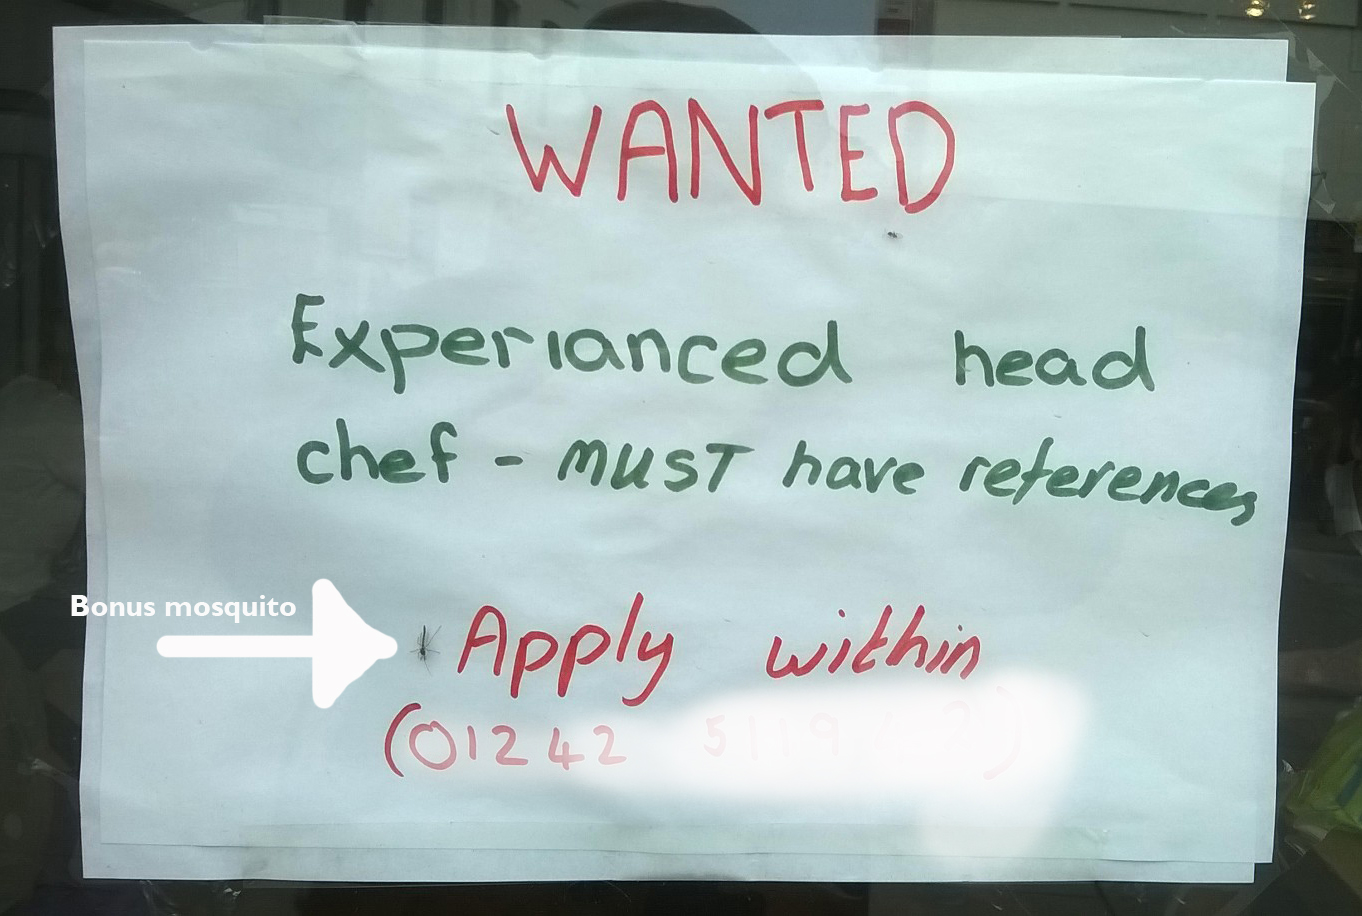 WANTED
Experianced head
chef - MUST have references
Bonus mosquito
Apply within
(01242